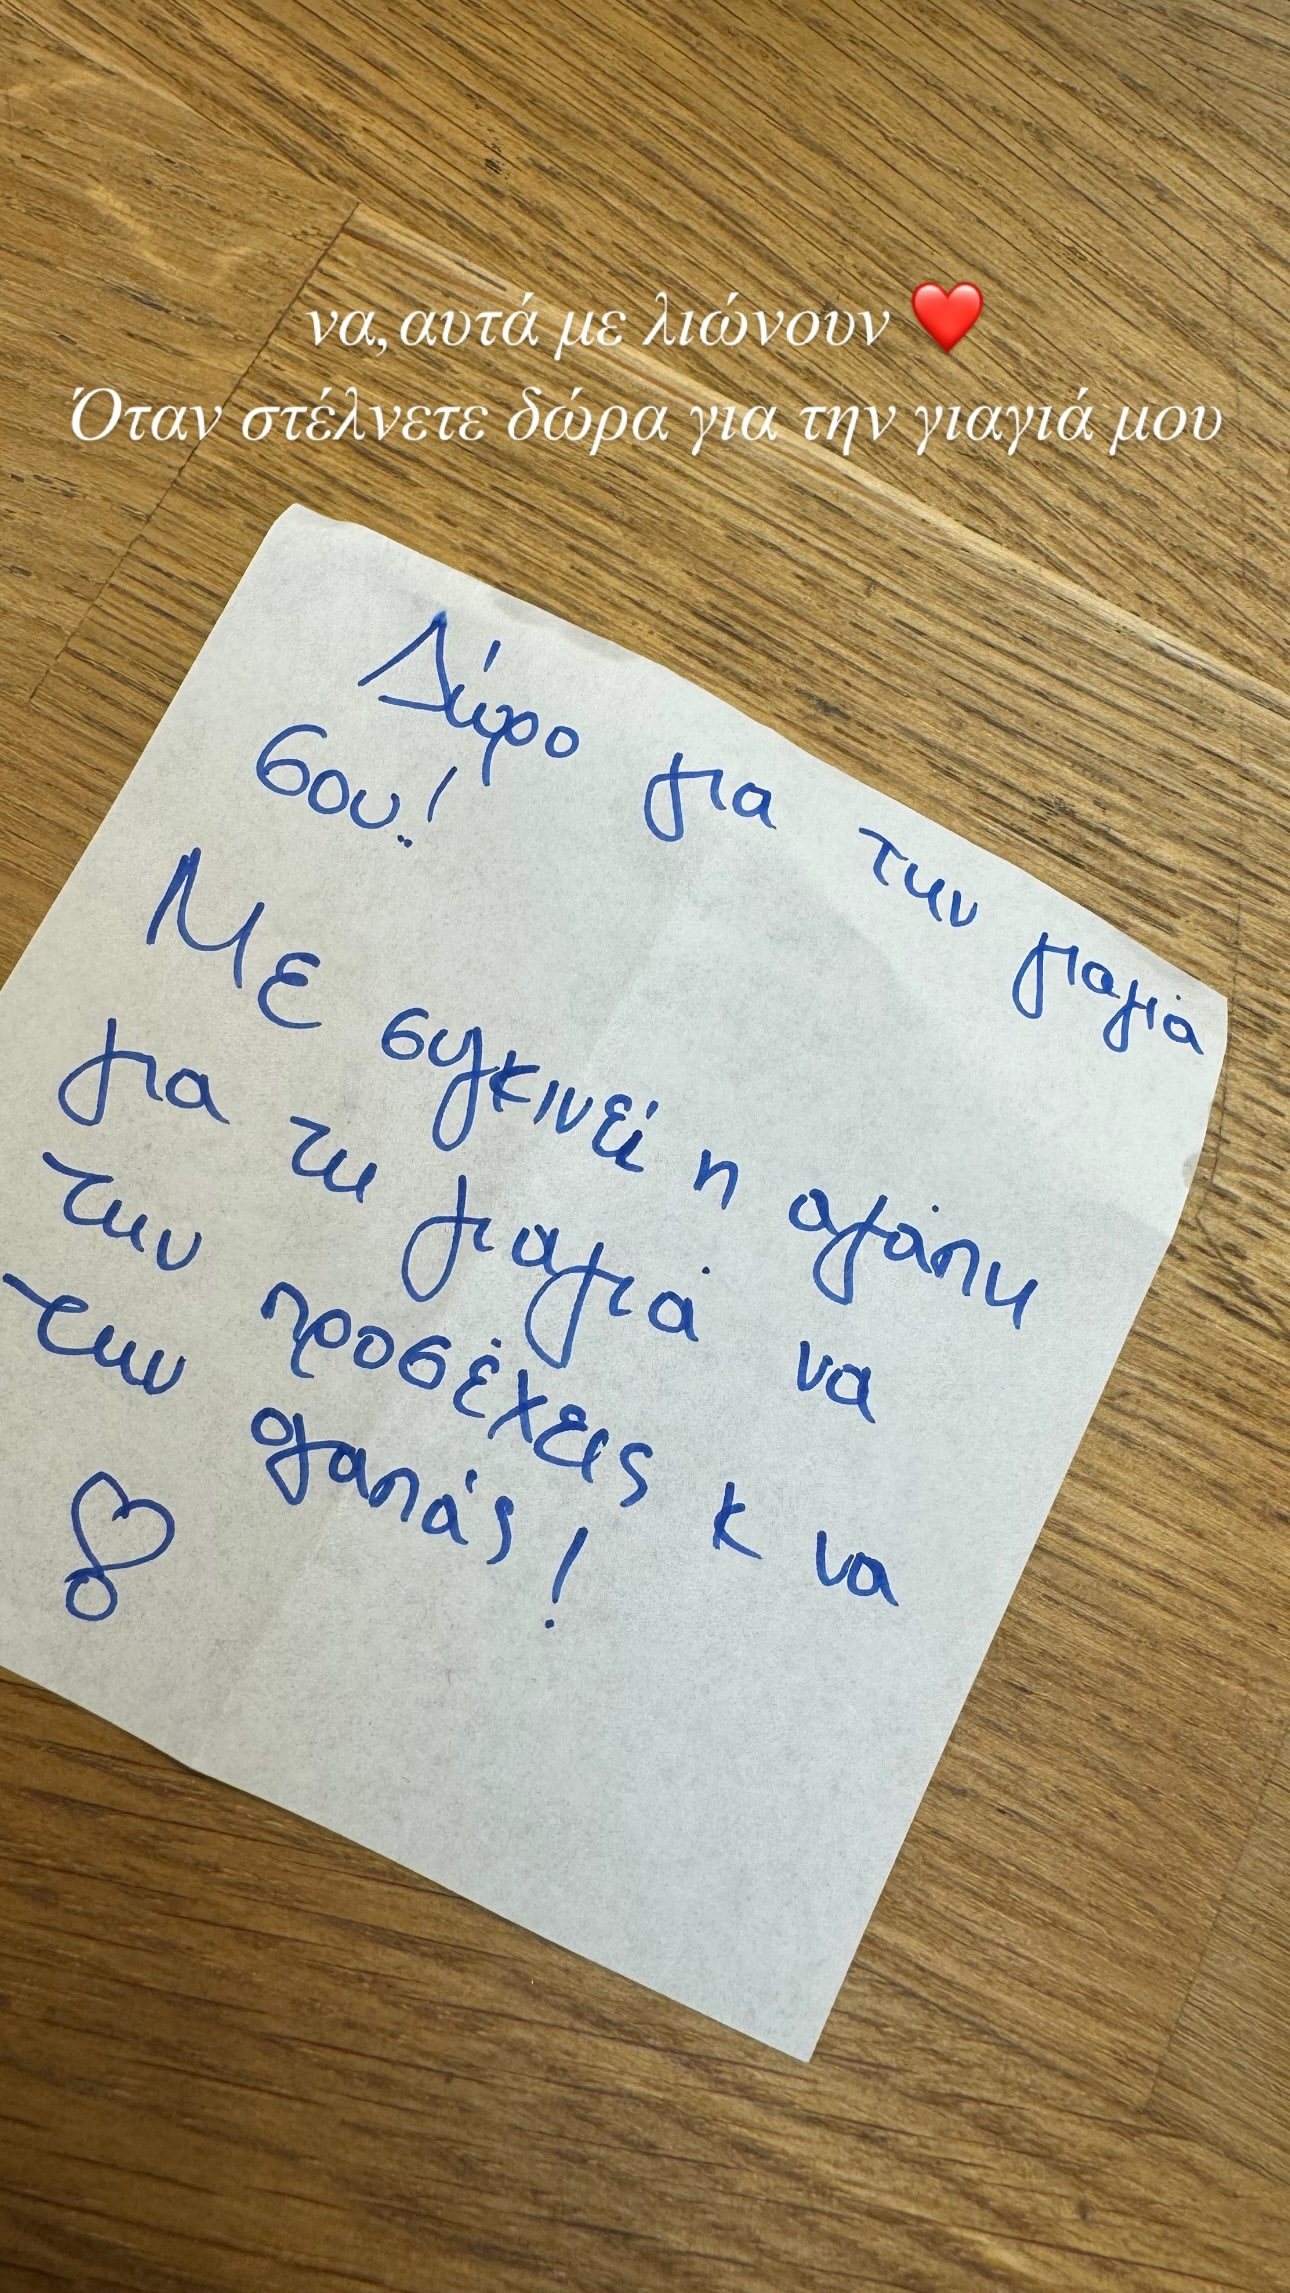 να, αυτά με λιώνουν ❤️
Όταν στέλνετε δώρα για την γιαγιά μου
Δώρο για την γιαγιά
σου!
Με συγκινεί η αγάπη
για τη γιαγιά να
την προσέχεις κ να
την αγαπάς!